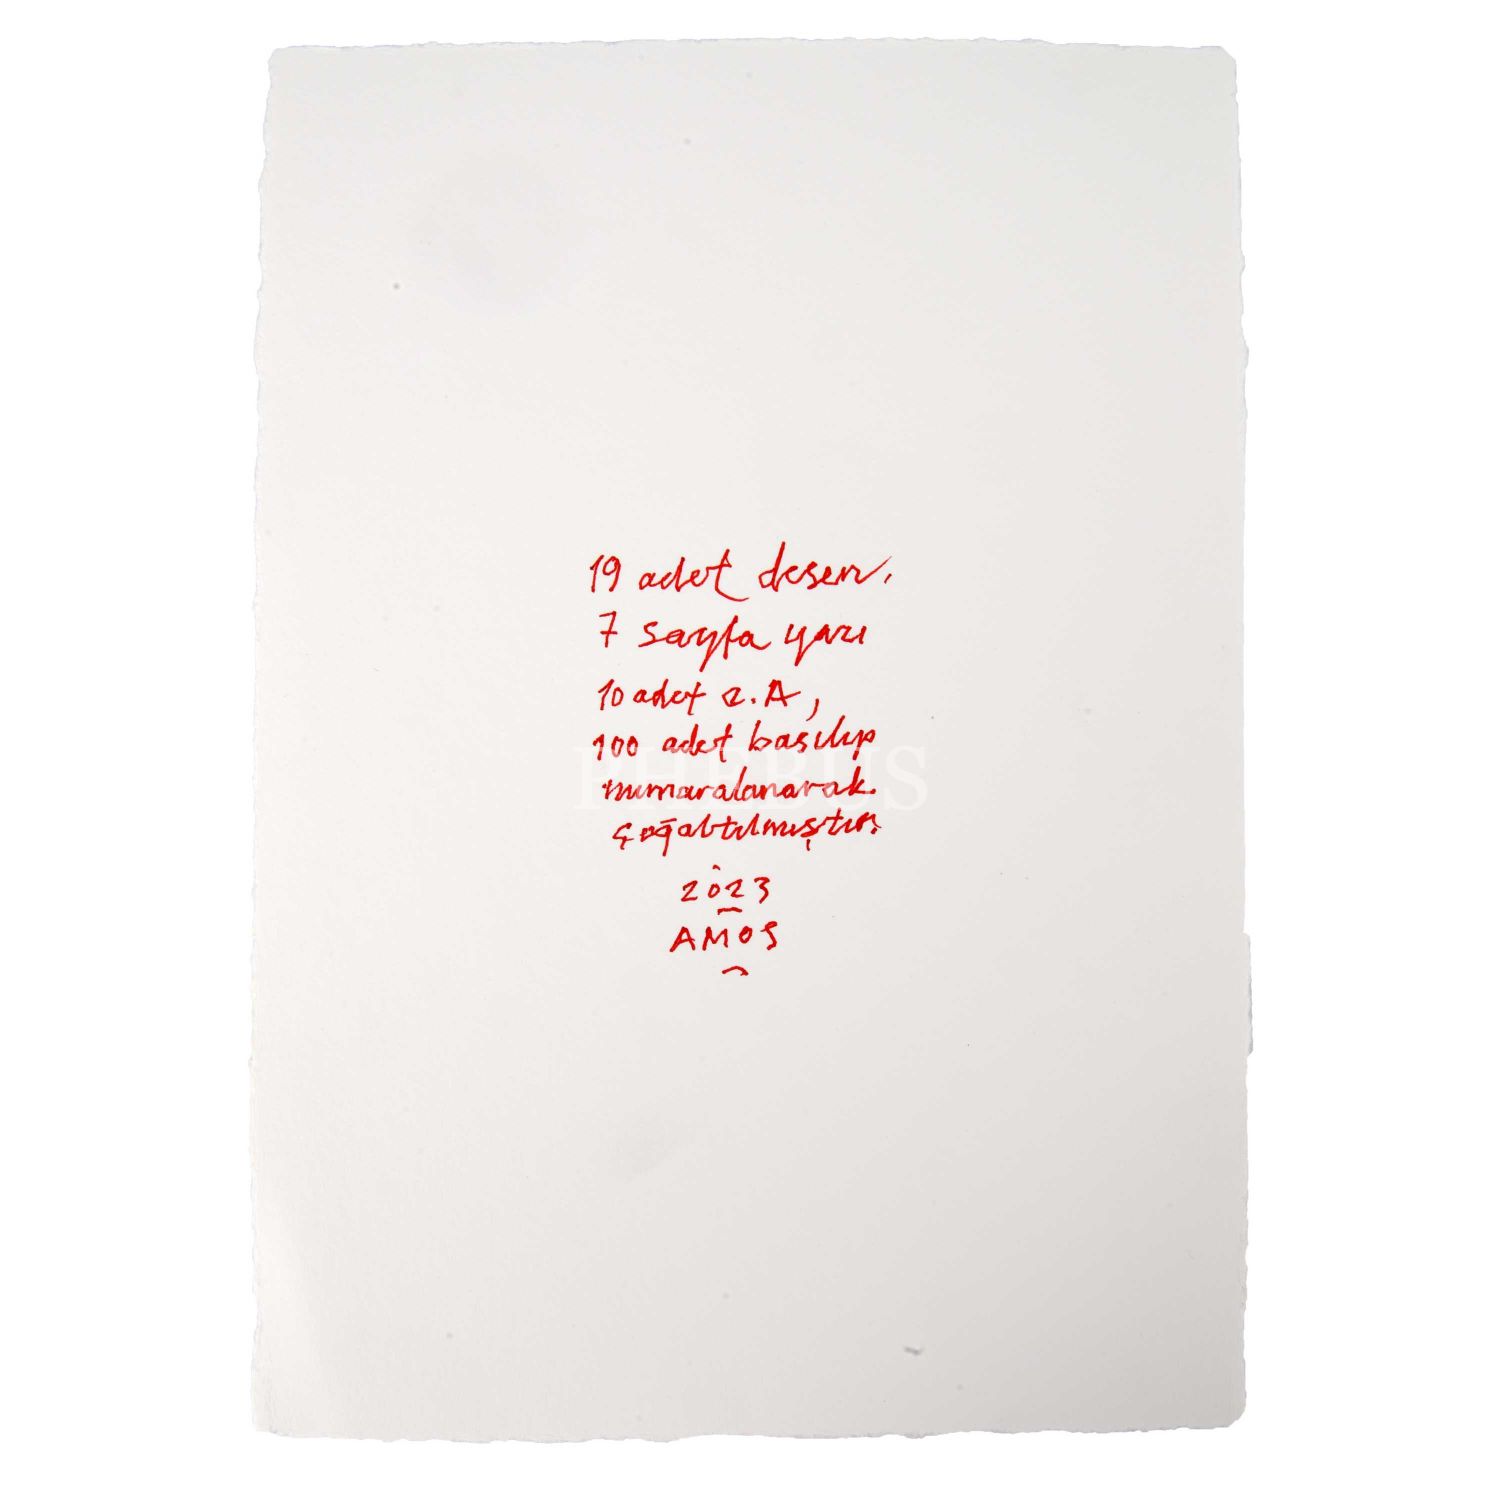 19 adet desen,
7 sayfa yazı
10 adet e.A,
100 adet basılıp
numaralanarak
çoğaltılmıştır.
2023
AMOS
PHEBUS